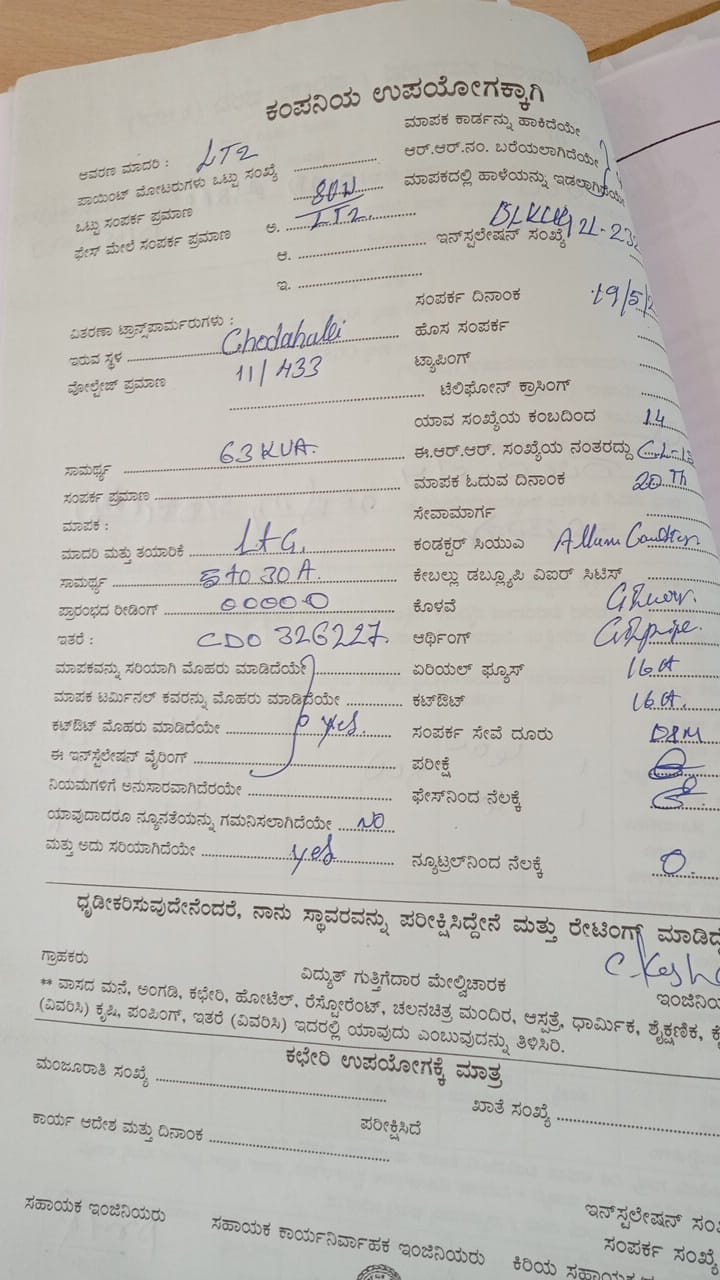 ಕಂಪನಿಯ ಉಪಯೋಗಕ್ಕಾಗಿ
ಮಾಪಕ ಕಾರ್ಡನ್ನು ಹಾಕಿದೆಯೇ
ಆವರಣ ಮಾದರಿ : LT2
ಆರ್.ಆರ್.ನಂ. ಬರೆಯಲಾಗಿದೆಯೇ
ಪಾಯಿಂಟ್ ಮೋಟರುಗಳು ಒಟ್ಟು ಸಂಖ್ಯೆ
ಮಾಪಕದಲ್ಲಿ ಹಾಳೆಯನ್ನು ಇಡಲಾಗಿದೆಯೇ
ಒಟ್ಟು ಸಂಪರ್ಕ ಪ್ರಮಾಣ 80W
ಫೇಸ್ ಮೇಲೆ ಸಂಪರ್ಕ ಪ್ರಮಾಣ ಅ. LT2.
ಆ. ಇನ್‌ಸ್ಪಲೇಷನ್ ಸಂಖ್ಯೆ
ಇ.
ಸಂಪರ್ಕ ದಿನಾಂಕ 19/5/2
ವಿತರಣಾ ಟ್ರಾನ್ಸ್‌ಪಾರ್ಮರುಗಳು :
ಹೊಸ ಸಂಪರ್ಕ
ಇರುವ ಸ್ಥಳ Chodahalli
ಟ್ಯಾಪಿಂಗ್
ವೋಲ್ಟೇಜ್ ಪ್ರಮಾಣ 11/433
ಟೆಲಿಫೋನ್ ಕ್ರಾಸಿಂಗ್
ಯಾವ ಸಂಖ್ಯೆಯ ಕಂಬದಿಂದ 14
ಸಾಮರ್ಥ್ಯ 63 KVA.
ಈ.ಆರ್.ಆರ್. ಸಂಖ್ಯೆಯ ನಂತರದ್ದು
ಸಂಪರ್ಕ ಪ್ರಮಾಣ
ಮಾಪಕ ಓದುವ ದಿನಾಂಕ 20 Th
ಮಾಪಕ :
ಸೇವಾಮಾರ್ಗ
ಮಾದರಿ ಮತ್ತು ತಯಾರಿಕೆ L+G.
ಕಂಡಕ್ಟರ್ ಸಿಯುಎ
ಸಾಮರ್ಥ್ಯ 5 to 30 A.
ಕೇಬಲ್ಲು ಡಬ್ಲ್ಯೂಪಿ ವಿಐರ್ ಸಿಟಿಸ್
ಪ್ರಾರಂಭದ ರೀಡಿಂಗ್ 00000
ಕೊಳವೆ
ಇತರೆ : CDO 326227.
ಆರ್ಥಿಂಗ್
ಮಾಪಕವನ್ನು ಸರಿಯಾಗಿ ಮೊಹರು ಮಾಡಿದೆಯೇ
ಏರಿಯಲ್ ಫ್ಯೂಸ್ 16 A
ಮಾಪಕ ಟರ್ಮಿನಲ್ ಕವರನ್ನು ಮೊಹರು ಮಾಡಿದೆಯೇ
ಕಟ್ಔಟ್ 16 A.
ಕಟ್ಔಟ್ ಮೊಹರು ಮಾಡಿದೆಯೇ yes.
ಸಂಪರ್ಕ ಸೇವೆ ದೂರು
ಈ ಇನ್‌ಸ್ಪೆಲೇಷನ್ ವೈರಿಂಗ್
ಪರೀಕ್ಷೆ
ನಿಯಮಗಳಿಗೆ ಅನುಸಾರವಾಗಿದೆರಯೇ
ಫೇಸ್‌ನಿಂದ ನೆಲಕ್ಕೆ
ಯಾವುದಾದರೂ ನ್ಯೂನತೆಯನ್ನು ಗಮನಿಸಲಾಗಿದೆಯೇ NO
ಮತ್ತು ಅದು ಸರಿಯಾಗಿದೆಯೇ yes
ನ್ಯೂಟ್ರಲ್‌ನಿಂದ ನೆಲಕ್ಕೆ 0.
ಧೃಡೀಕರಿಸುವುದೇನೆಂದರೆ, ನಾನು ಸ್ಥಾವರವನ್ನು ಪರೀಕ್ಷಿಸಿದ್ದೇನೆ ಮತ್ತು ರೇಟಿಂಗ್ ಮಾಡಿದ್ದೆ
ಗ್ರಾಹಕರು ವಿದ್ಯುತ್ ಗುತ್ತಿಗೆದಾರ ಮೇಲ್ವಿಚಾರಕ ಇಂಜಿನಿಯ
** ವಾಸದ ಮನೆ, ಅಂಗಡಿ, ಕಛೇರಿ, ಹೋಟೆಲ್, ರೆಸ್ಪೋರೆಂಟ್, ಚಲನಚಿತ್ರ ಮಂದಿರ, ಆಸ್ಪತ್ರೆ, ಧಾರ್ಮಿಕ, ಶೈಕ್ಷಣಿಕ, ಕೈ
(ವಿವರಿಸಿ) ಕೃಷಿ, ಪಂಪಿಂಗ್, ಇತರೆ (ವಿವರಿಸಿ) ಇದರಲ್ಲಿ ಯಾವುದು ಎಂಬುವುದನ್ನು ತಿಳಿಸಿರಿ.
ಕಛೇರಿ ಉಪಯೋಗಕ್ಕೆ ಮಾತ್ರ
ಮಂಜೂರಾತಿ ಸಂಖ್ಯೆ ಖಾತೆ ಸಂಖ್ಯೆ
ಕಾರ್ಯ ಆದೇಶ ಮತ್ತು ದಿನಾಂಕ ಪರೀಕ್ಷಿಸಿದೆ
ಇನ್‌ಸ್ಪಲೇಷನ್ ಸಂಖ
ಸಹಾಯಕ ಇಂಜಿನಿಯರು ಸಹಾಯಕ ಕಾರ್ಯನಿರ್ವಾಹಕ ಇಂಜಿನಿಯರು ಸಂಪರ್ಕ ಸಂಖ್ಯೆ
ಕಿರಿಯ ಸಹಾಯಕ